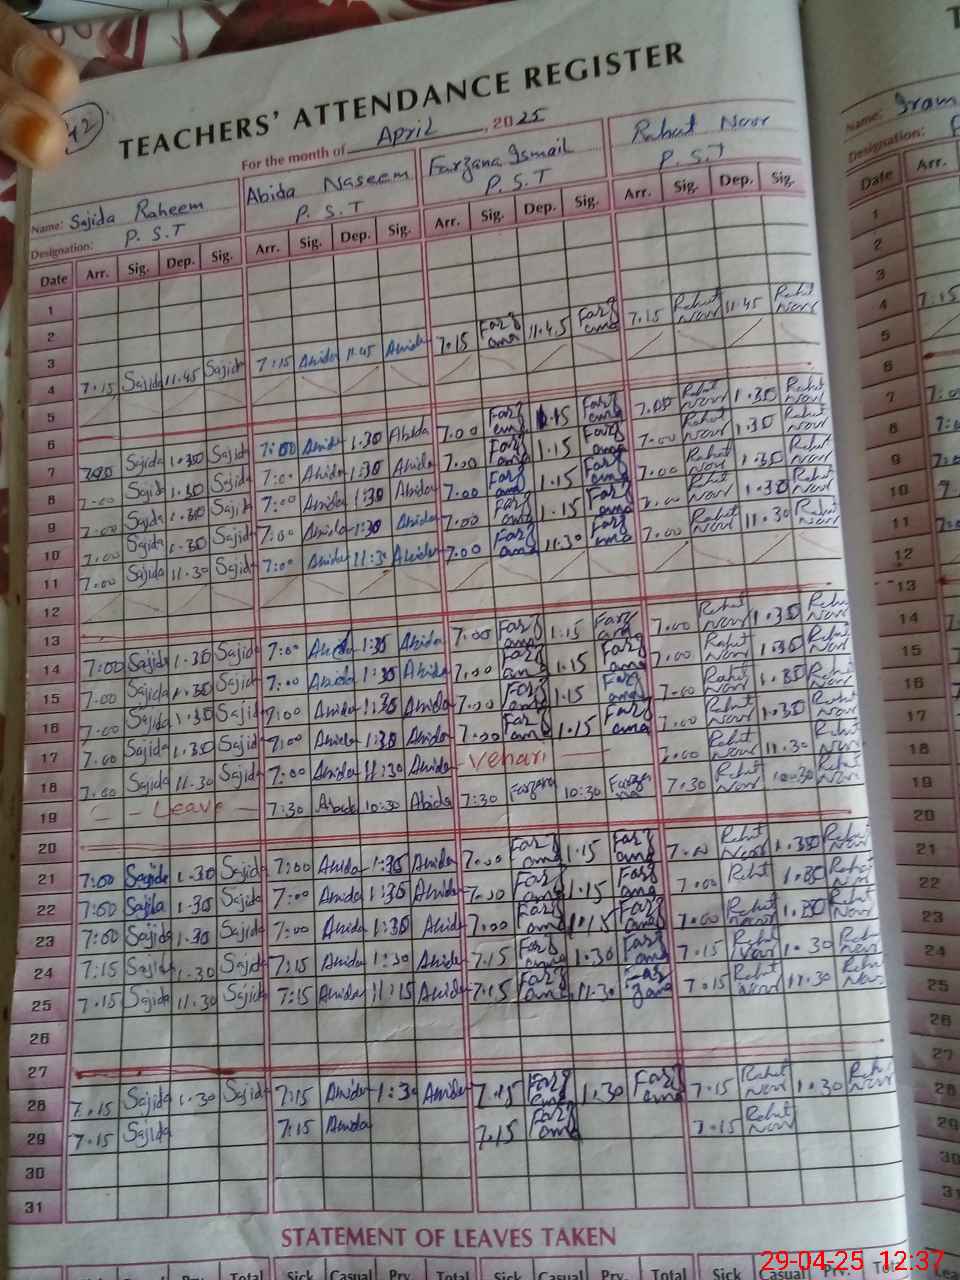 42
TEACHERS' ATTENDANCE REGISTER
For the month of April, 2025
Name: Sajida Raheem Abida Naseem Farzana Ismail Rahat Noor
Designation: P.S.T P.S.T P.S.T P.S.T
Date Arr. Sig. Dep. Sig. Arr. Sig. Dep. Sig. Arr. Sig. Dep. Sig. Arr. Sig. Dep. Sig.
1
2
3
4 7.15 Sajida 11.45 Sajida 7:15 Abida 11:45 Abida 7.15 Farzana 11.45 Farzana 7.15 Rahat Noor 11.45 Rahat Noor
5
6
7 7.00 Sajida 1.30 Sajida 7:00 Abida 1.30 Abida 7.00 Farzana 1.15 Farzana 7.00 Rahat Noor 1.30 Rahat Noor
8 7.00 Sajida 1.30 Sajida 7:00 Abida 1:30 Abida 7.00 Farzana 1.15 Farzana 7.00 Rahat Noor 1.30 Rahat Noor
9 7.00 Sajida 1.30 Sajida 7:00 Abida 1:30 Abida 7.00 Farzana 1.15 Farzana 7.00 Rahat Noor 1.30 Rahat Noor
10 7.00 Sajida 1.30 Sajida 7:00 Abida 1:30 Abida 7.00 Farzana 1.15 Farzana 7.00 Rahat Noor 1.30 Rahat Noor
11 7.00 Sajida 11.30 Sajida 7:00 Abida 11:30 Abida 7.00 Farzana 11.30 Farzana 7.00 Rahat Noor 11.30 Rahat Noor
12
13
14 7:00 Sajida 1.30 Sajida 7:00 Abida 1:30 Abida 7.00 Farzana 1.15 Farzana 7.00 Rahat Noor 1.30 Rahat Noor
15 7.00 Sajida 1.30 Sajida 7:00 Abida 1:30 Abida 7.00 Farzana 1.15 Farzana 7.00 Rahat Noor 1.30 Rahat Noor
16 7.00 Sajida 1.30 Sajida 7:00 Abida 1:30 Abida 7.00 Farzana 1.15 Farzana 7.00 Rahat Noor 1.30 Rahat Noor
17 7.00 Sajida 1.30 Sajida 7:00 Abida 1:30 Abida 7.00 Farzana 1.15 Farzana 7.00 Rahat Noor 1.30 Rahat Noor
18 7.00 Sajida 11.30 Sajida 7:00 Abida 11:30 Abida Vehari 7.00 Rahat Noor 11.30 Rahat Noor
19 Leave 7:30 Abida 10:30 Abida 7:30 Farzana 10:30 Farzana 7.30 Rahat Noor 10.30 Rahat Noor
20
21 7:00 Sajida 1.30 Sajida 7:00 Abida 1:30 Abida 7.00 Farzana 1.15 Farzana 7.00 Rahat Noor 1.30 Rahat Noor
22 7:00 Sajida 1.30 Sajida 7:00 Abida 1:30 Abida 7.00 Farzana 1.15 Farzana 7.00 Rahat 1.30 Rahat Noor
23 7:00 Sajida 1.30 Sajida 7:00 Abida 1:30 Abida 7.00 Farzana 1.15 Farzana 7.00 Rahat Noor 1.30 Rahat Noor
24 7:15 Sajida 1.30 Sajida 7:15 Abida 1:30 Abida 7.15 Farzana 1.30 Farzana 7.15 Rahat Noor 1.30 Rahat Noor
25 7.15 Sajida 11.30 Sajida 7:15 Abida 11:15 Abida 7.15 Farzana 11.30 Farzana 7.15 Rahat Noor 11.30 Rahat Noor
26
27
28 7.15 Sajida 1.30 Sajida 7:15 Abida 1:30 Abida 7.15 Farzana 1.30 Farzana 7.15 Rahat Noor 1.30 Rahat Noor
29 7.15 Sajida 7:15 Abida 7.15 Farzana 7.15 Rahat Noor
30
31
STATEMENT OF LEAVES TAKEN
Total Sick Casual Prv. Total Sick Casual Prv. Total Sick Casual Prv. Total
Name: Iram
Designation:
Date Arr.
1
2
3
4 7:15
5
6
7
8
9
10
11
12
13
14
15
16
17
18
19
20
21
22
23
24
25
26
27
28
29
30
29-04-25 12:37